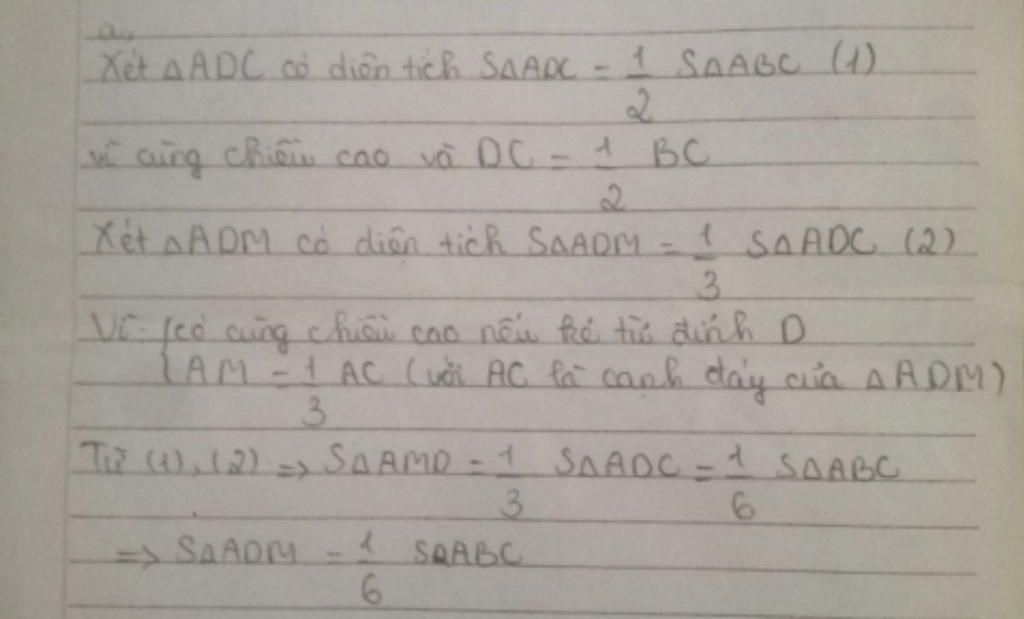 a,
Xét △ADC có diện tích S△ADC = 1/2 S△ABC (1)
vì cùng chiều cao và DC = 1/2 BC
Xét △ADM có diện tích S△ADM = 1/3 S△ADC (2)
Vì {có cùng chiều cao nếu kẻ từ đỉnh D
{AM = 1/3 AC (với AC là cạnh đáy của △ADM)
Từ (1), (2) => S△AMD = 1/3 S△ADC = 1/6 S△ABC
=> S△ADM = 1/6 S△ABC